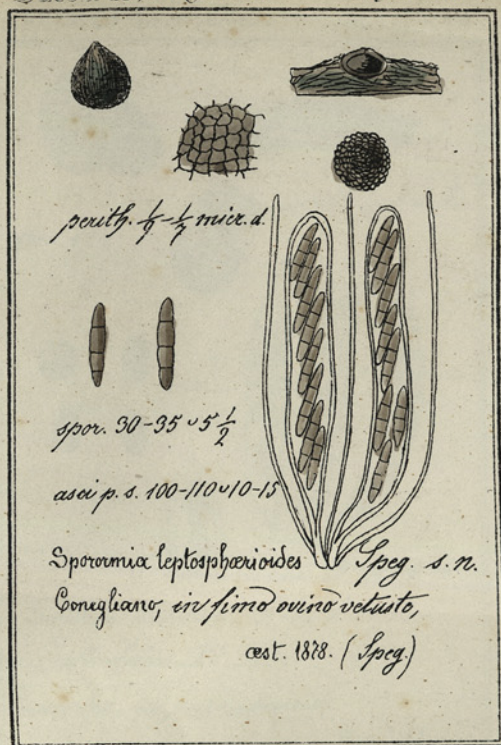 perith. 1/9 - 1/7 micr. d.
spor. 30-35 ᴗ 5 1/2
asci p. s. 100-110 ᴗ 10-15
Sporormia leptosphærioides Speg. s. n.
Conegliano, in fimo ovino vetusto,
æst. 1878. (Speg.)